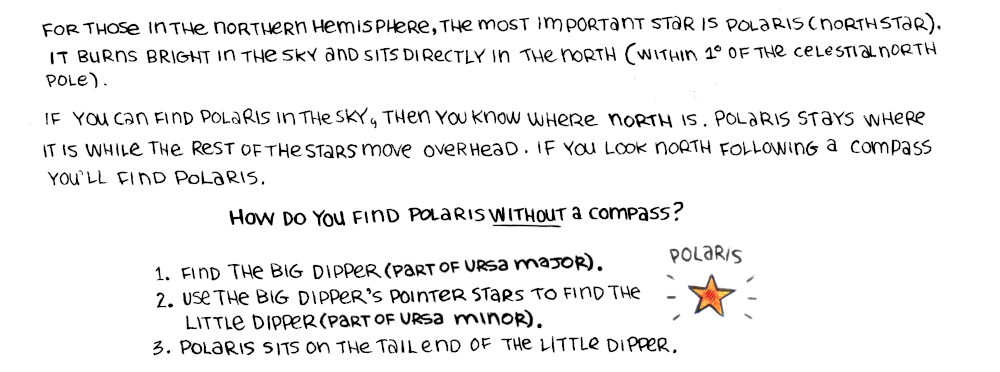 FOR THOSE IN THE NORTHERN HEMISPHERE, THE MOST IMPORTANT STAR IS POLARIS (NORTH STAR).
IT BURNS BRIGHT IN THE SKY AND SITS DIRECTLY IN THE NORTH (WITHIN 1° OF THE CELESTIAL NORTH
POLE).
IF YOU CAN FIND POLARIS IN THE SKY, THEN YOU KNOW WHERE NORTH IS. POLARIS STAYS WHERE
IT IS WHILE THE REST OF THE STARS MOVE OVERHEAD. IF YOU LOOK NORTH FOLLOWING A COMPASS
YOU'LL FIND POLARIS.
HOW DO YOU FIND POLARIS WITHOUT A COMPASS?
POLARIS
1. FIND THE BIG DIPPER (PART OF URSA MAJOR).
2. USE THE BIG DIPPER'S POINTER STARS TO FIND THE
LITTLE DIPPER (PART OF URSA MINOR).
3. POLARIS SITS ON THE TAIL END OF THE LITTLE DIPPER.